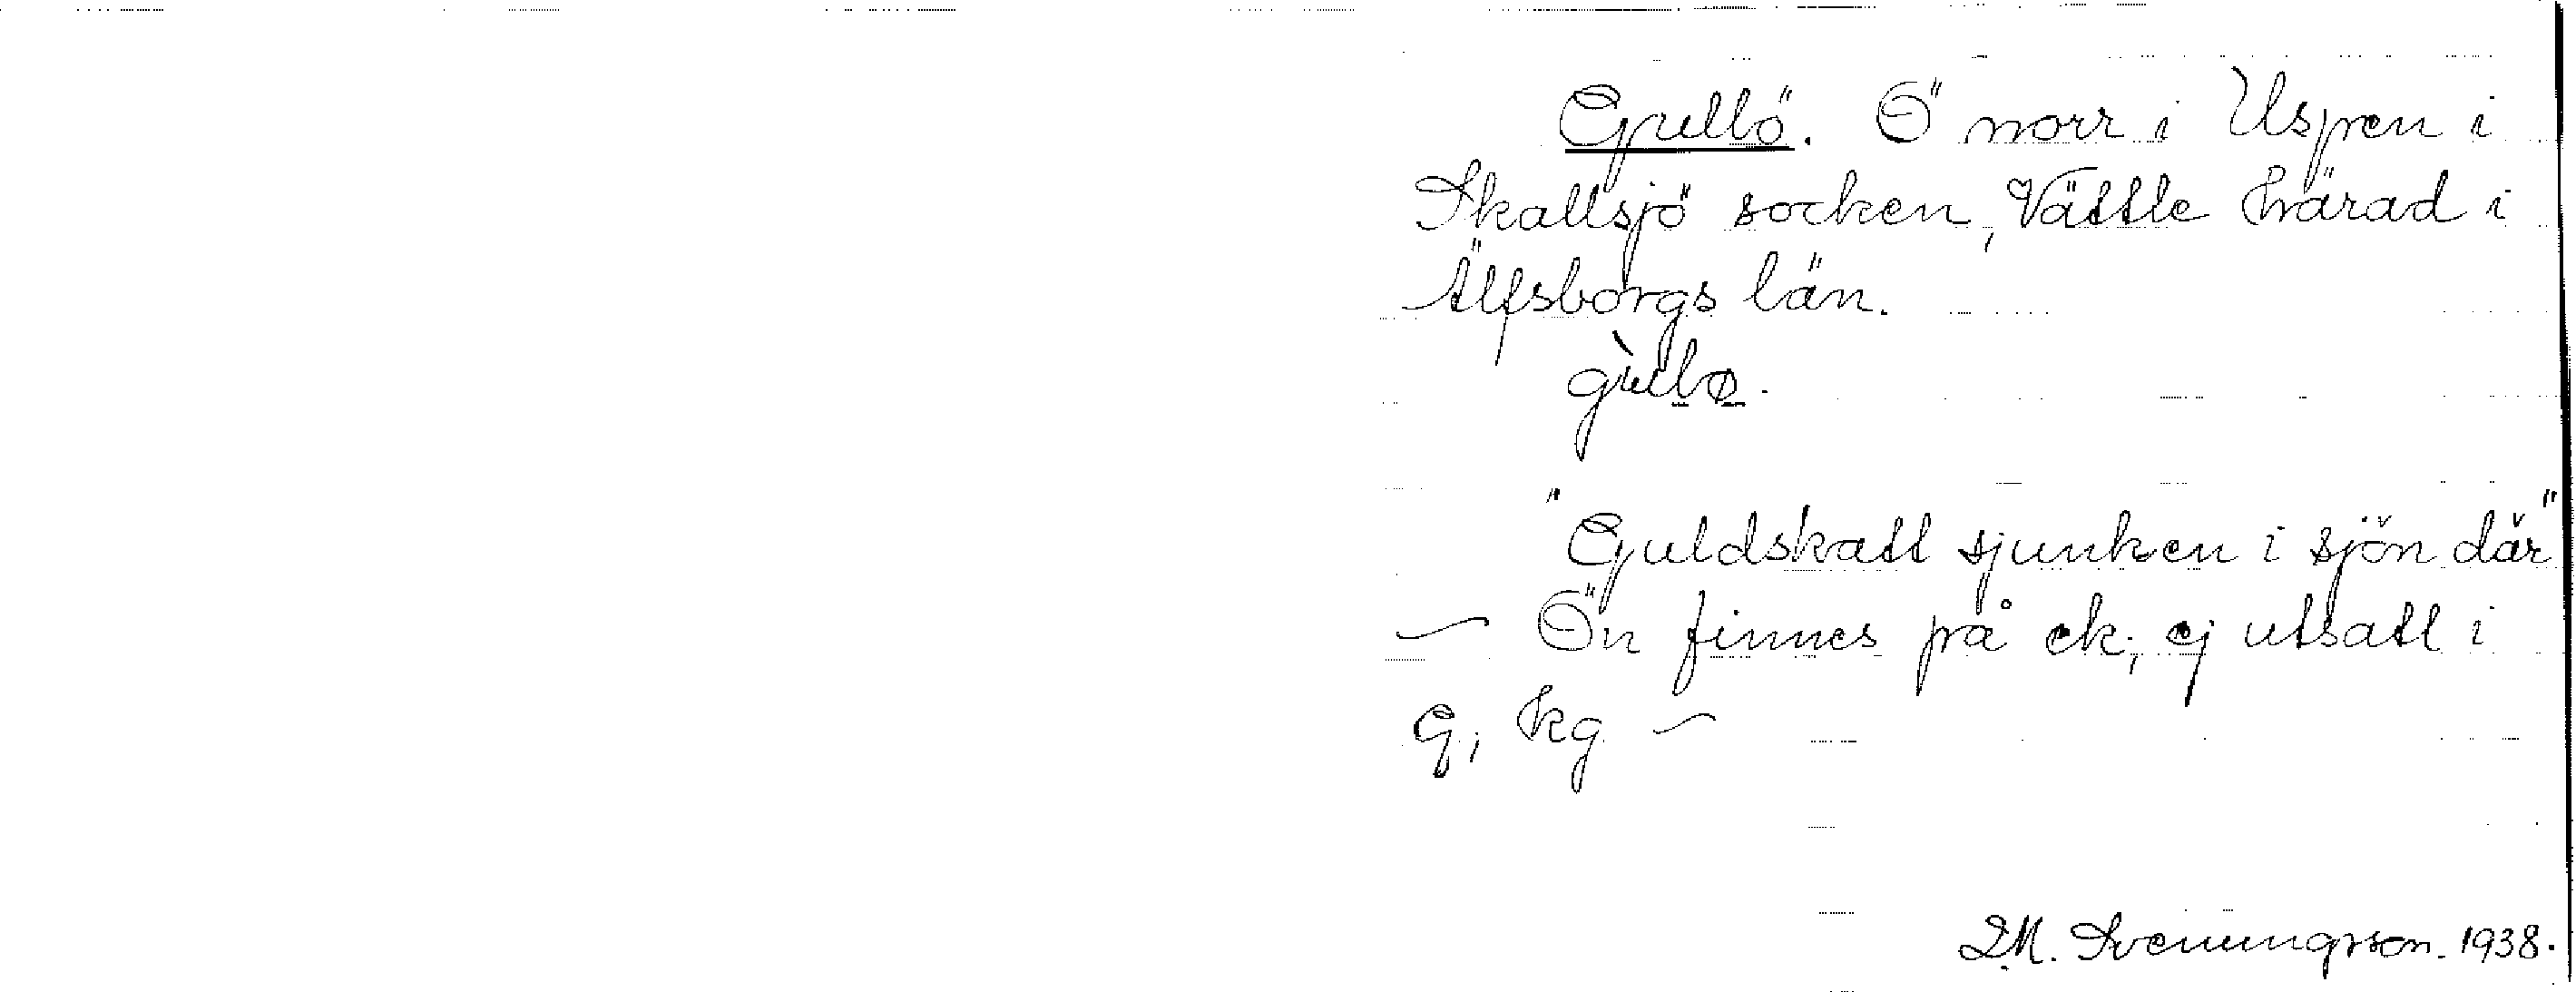 Gullö. Ö norr i Uspen i
Skallsjö socken, Vättle härad i
Älfsborgs län.
gùlø.
"Guldskatt sjunken i sjön där"
— Ön finnes på ek; ej utsatt i
G, kg —
D.M. Svenungsson. 1938.